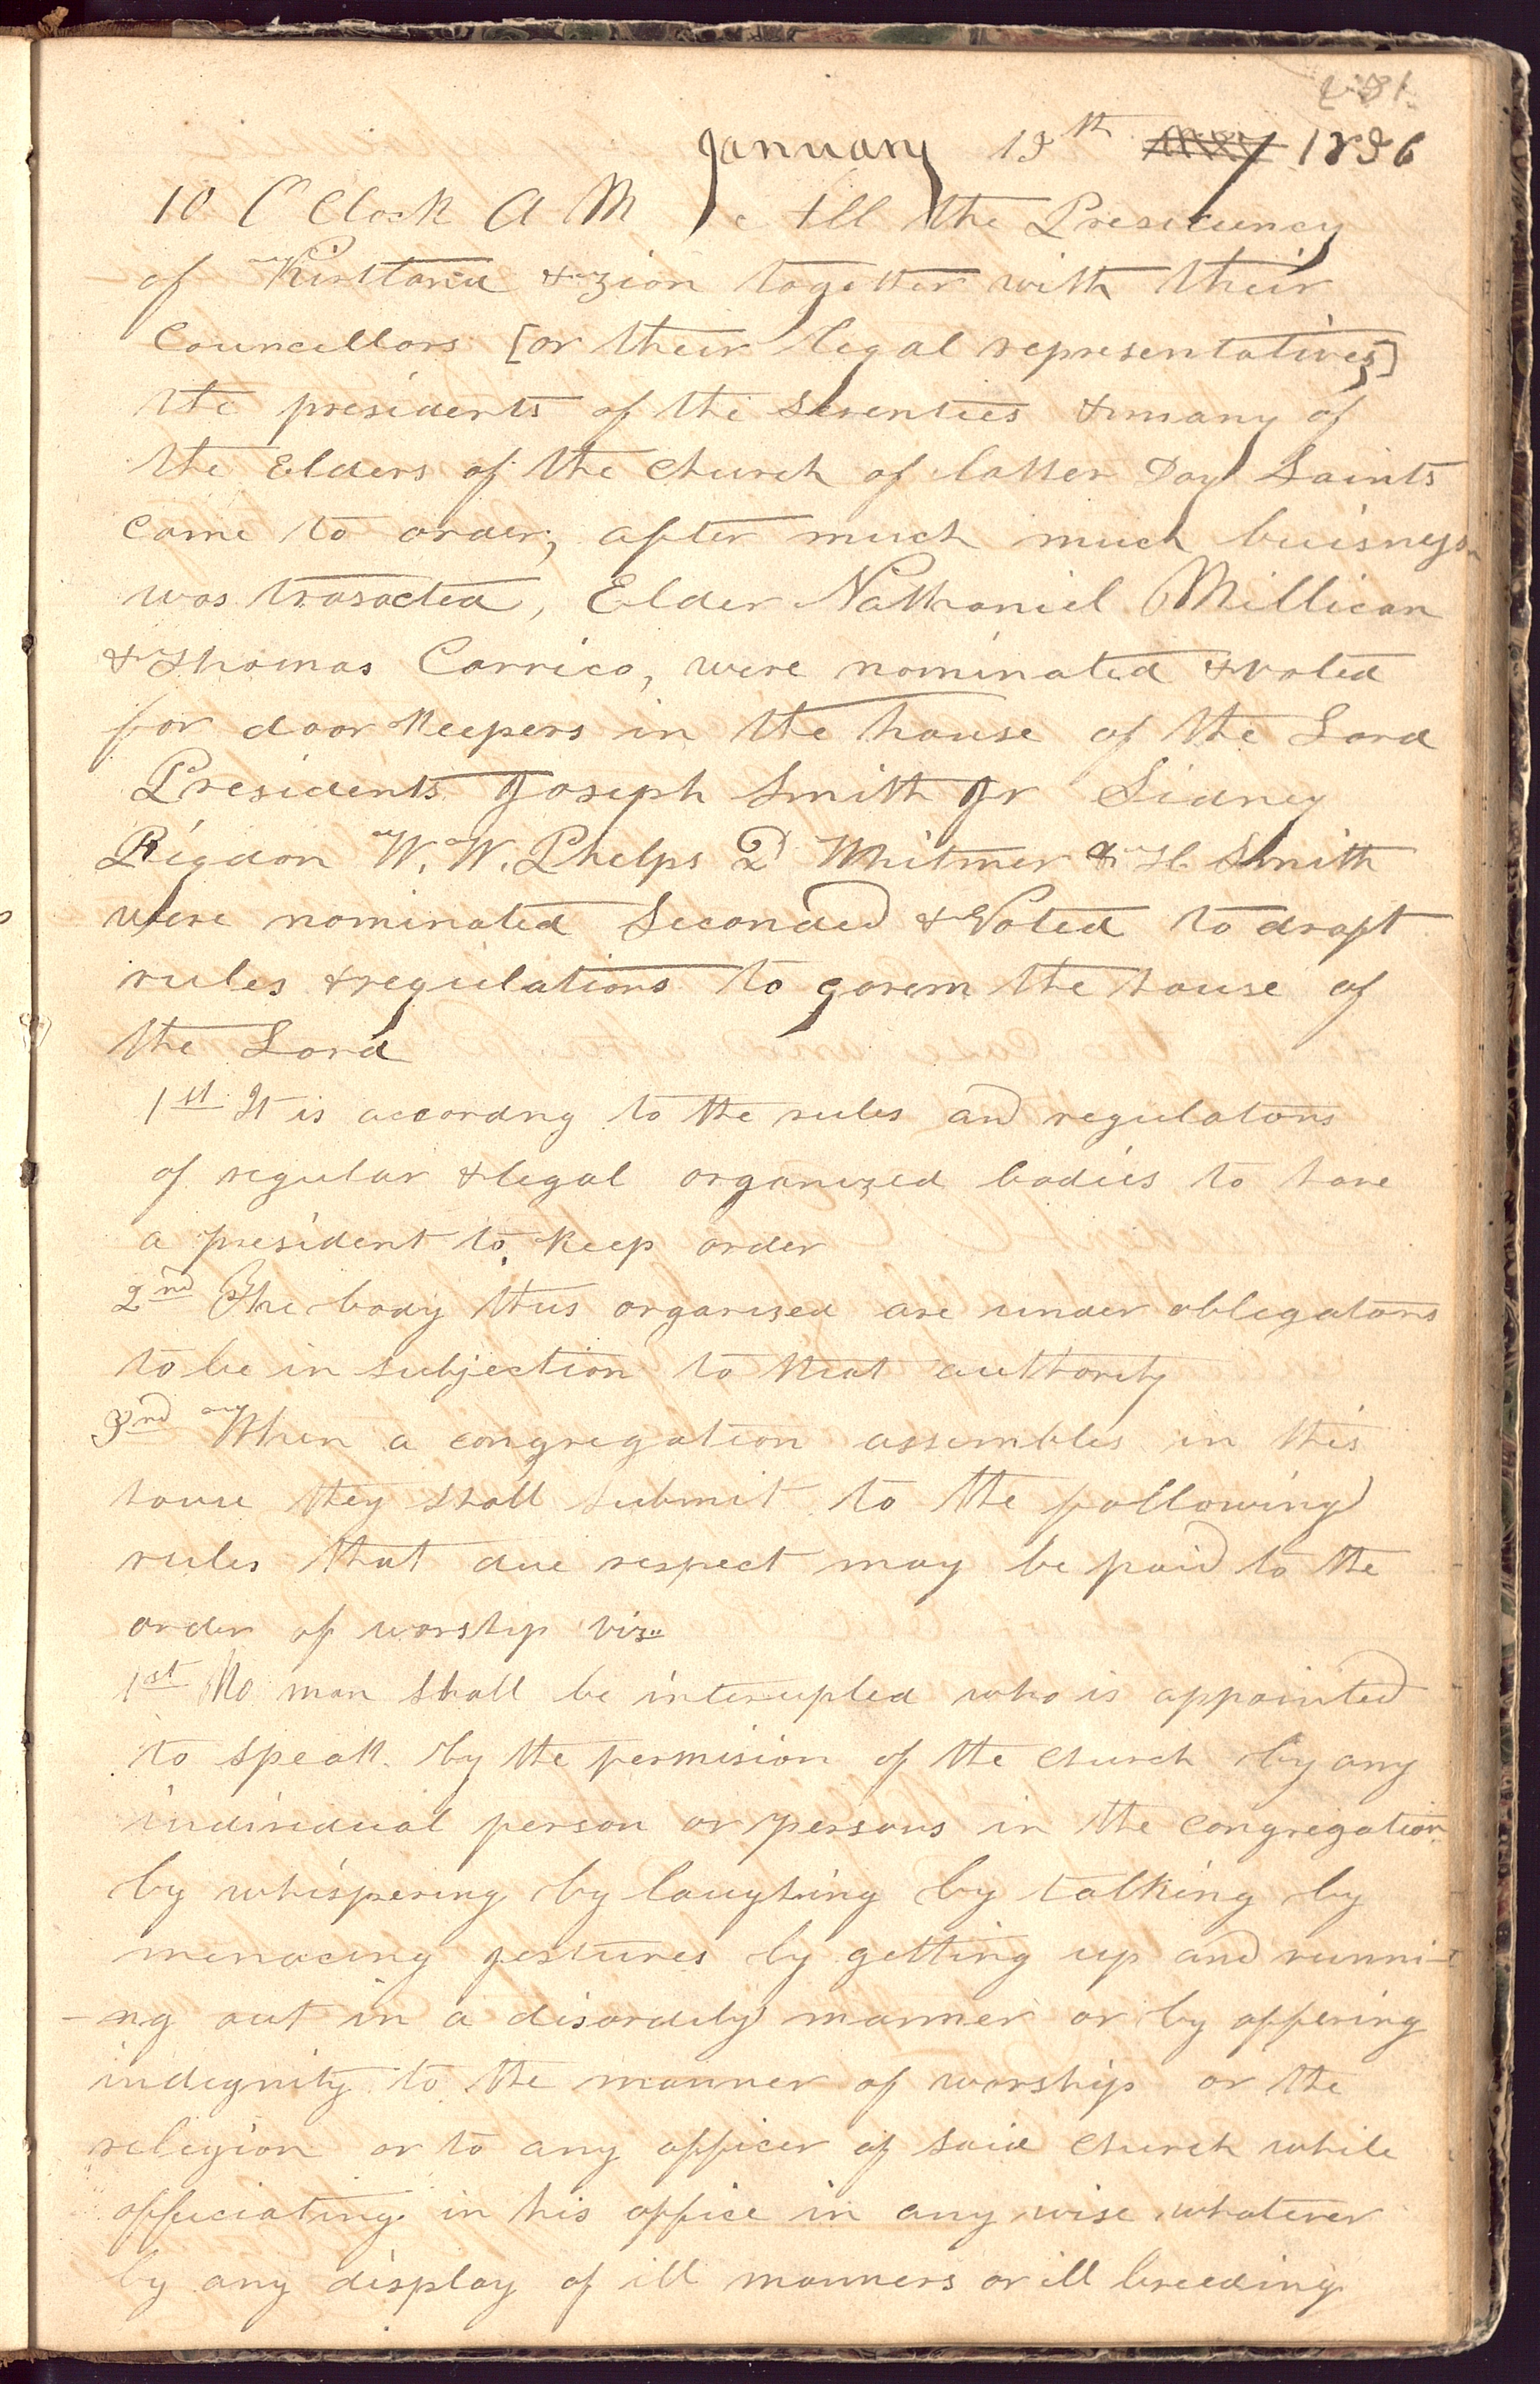 January 13th May 1836
10 O'Clock A M all the Presidency
of Kirtland & Zion together with their
Councellors [or their legal representatives]
the presidents of the Seventies & many of
the Elders of the church of latter Day Saints
came to order; after much much buisness
was trasacted, Elder Nathaniel Millican
& Thomas Carrico, were nominated & voted
for door Keepers in the house of the Lord
Presidents Joseph Smith Jr Sidney
Rigdon W. W. Phelps D Whitmer & H. Smith
were nominated Seconded & Voted to draft
rules & regulations to govern the house of
the Lord
1st It is accordng to the rules and regulatons
of regular & legal organized bodies to have
a president to keep order
2nd The body thus organized are under obligatons
to be in subjection to that authority
3rd When a congregation assembles in this
house they shall submit to the following
rules that due respect may be paid to the
order of worship viz..
1st No man shall be interupted who is appointed
to speak by the permision of the church by any
individual person or persons in the congregation
by whispering by laughing by talking by
menacing gestures by getting up and runni-
-ng out in a disordily manner or by offering
indignity to the manner of worship or the
religion or to any officer of said church while
officiating in his office in any wise whatever
by any display of ill manners or ill breeding